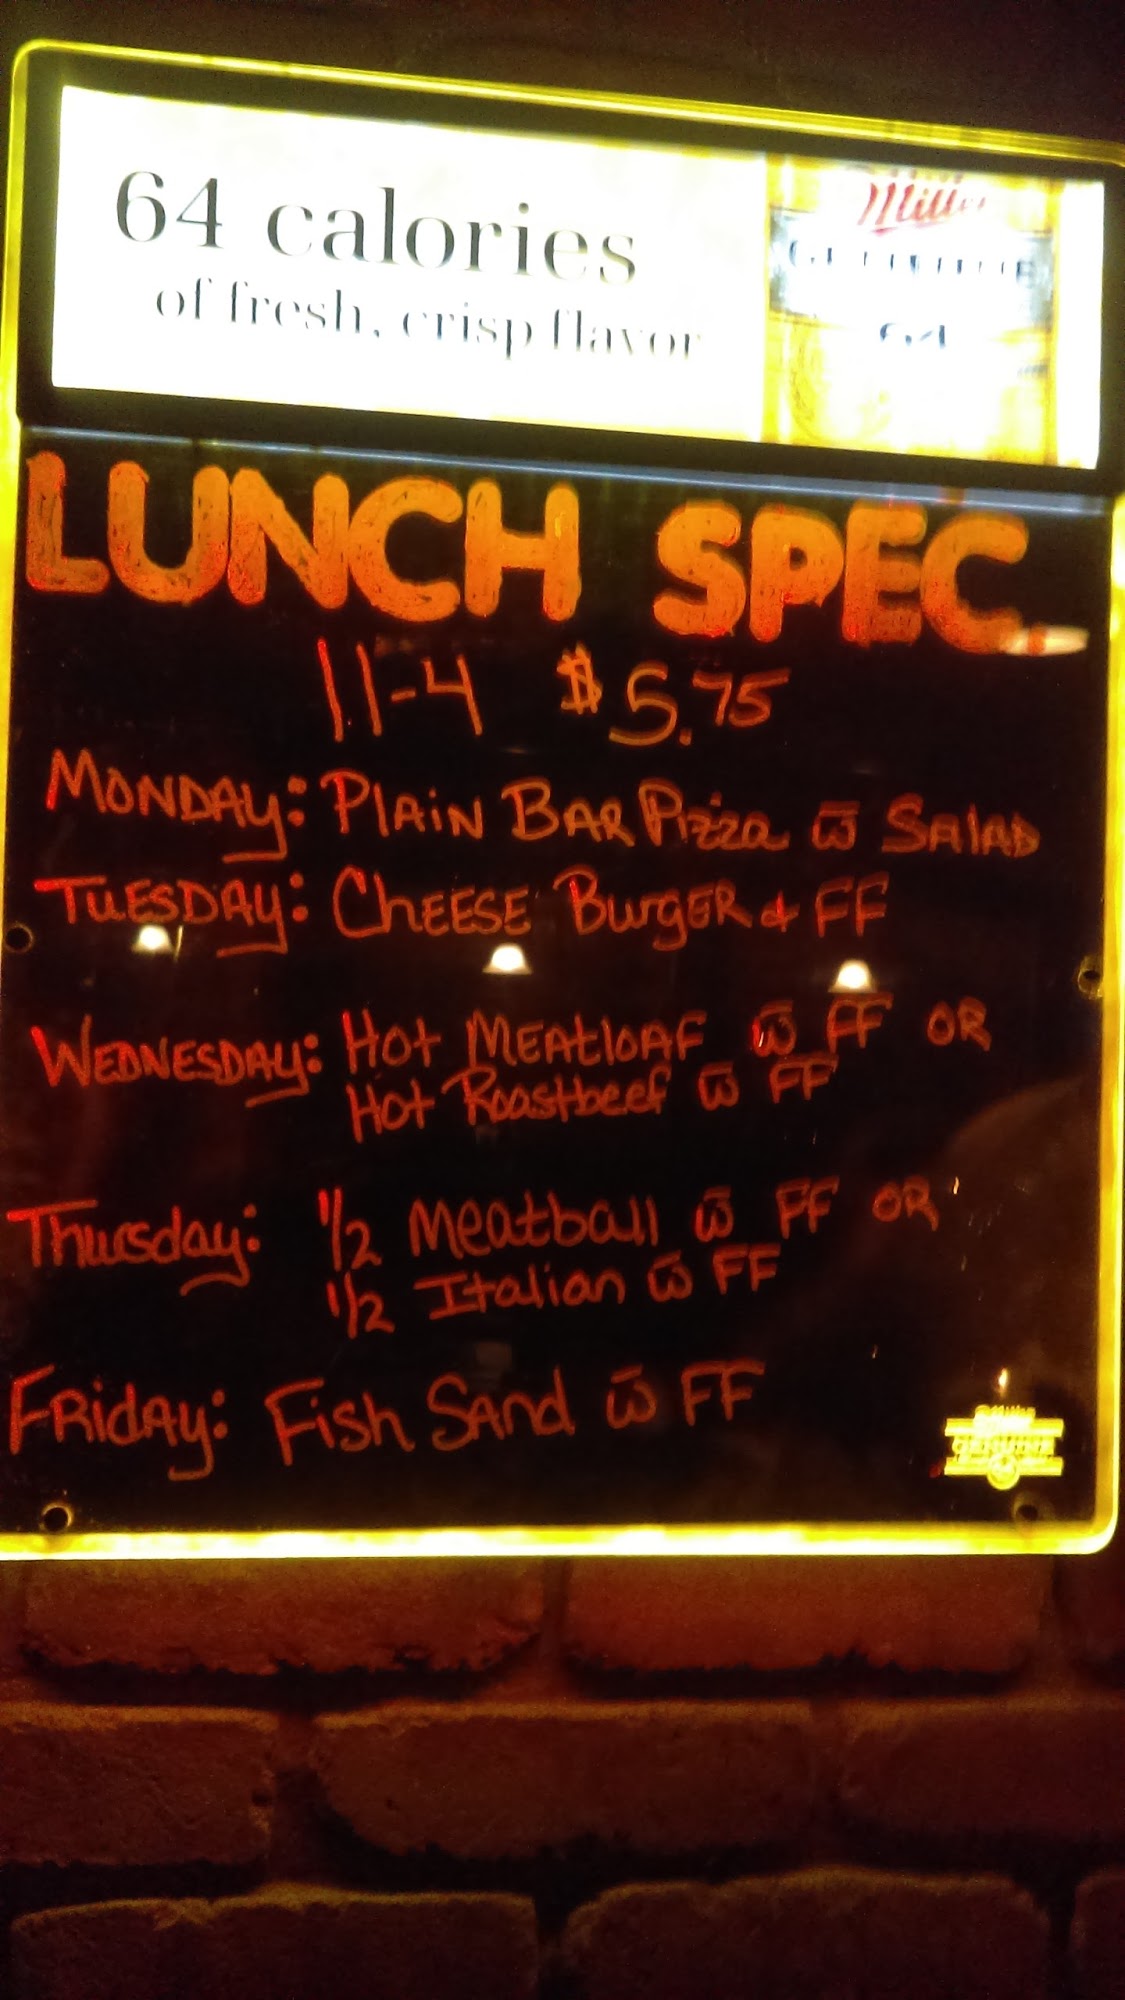 64 calories
of fresh, crisp flavor
Miller
GENUINE
64
LUNCH SPEC.
11-4 $5.75
MONDAY: PLAIN BAR Pizza w̅ SALAD
TUESDAY: CHEESE BURGER & FF
WEDNESDAY: HOT MEATLOAF w̅ FF OR
HOT Roastbeef w̅ FF
Thursday: 1/2 Meatball w̅ FF OR
1/2 Italian w̅ FF
FRIDAY: FISH SAND w̅ FF
Miller
GENUINE